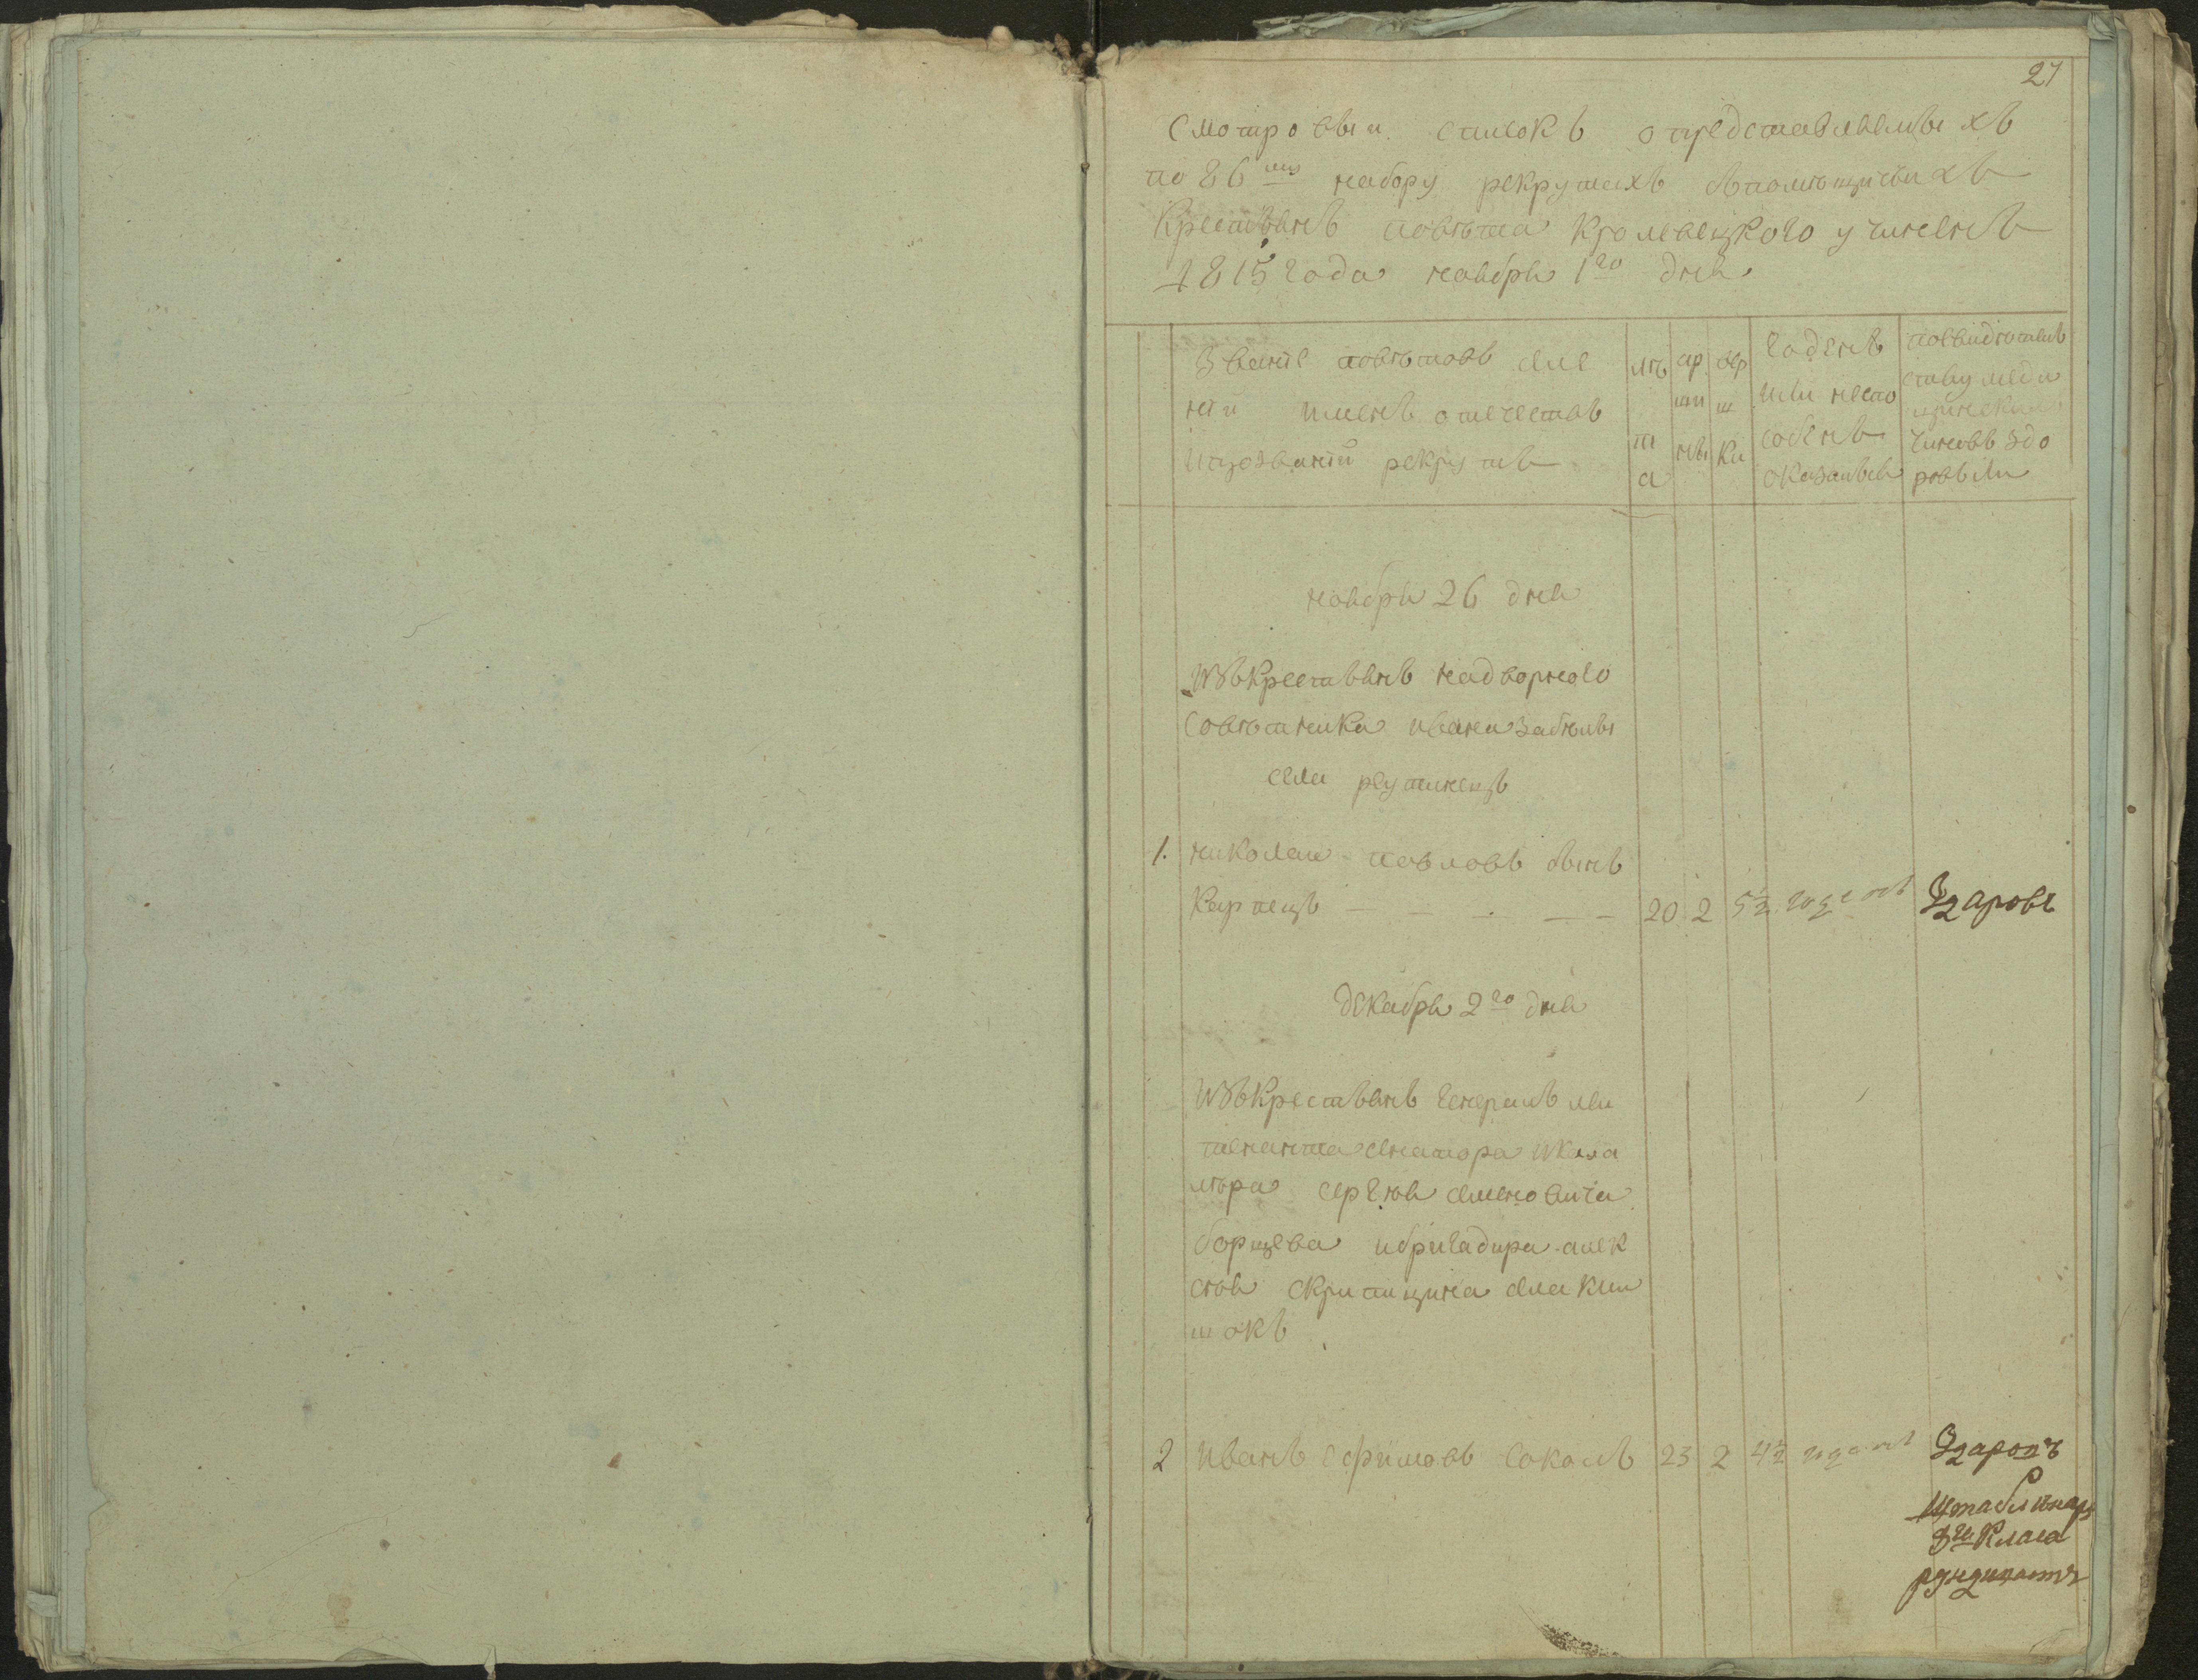 27
Смотровыи списокъ опредставляемыхъ
по 86му набору рекрутахъ съпомѣщичьихъ
крестьянъ повѣта Кролевецкого учиненъ
1815 года ноября 1го дня
Званіе повѣтовъ селе
ніи именъ отечествъ
ипрозваніи рекрутъ
лѣ
т
а
ар
ши
ны
вер
ш
ки
годенъ
или неспо
собенъ
оказался
посвидѣтель
ству меди
цинскихъ
чиновъ здо
ровъ ли
ноября 26 дня
Изъкрестьянъ надворного
Совѣтника ивана забѣлы
села реутинецъ
1. николаи павловъ сынъ
Карпецъ — — — — — 20 2 5½ годенъ Здаровъ
декабря 2го дня
Изъкрестьянъ генералъ леи
тенанта сенатора икава
лѣра сергѣя семеновича
борщева ибригадира алек
сѣя скрипицина села кли
шокъ
2 иванъ ефимовъ соколъ 23 2 4½ годенъ Здаровъ
Штабълѣкарь
8го Класа